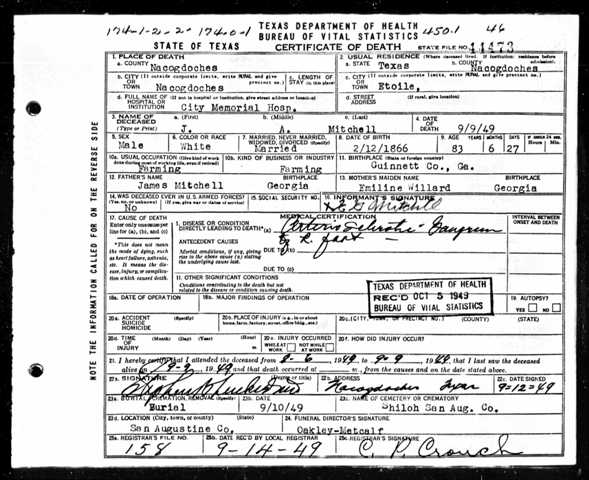 174-1-2-2- 174-0-1
TEXAS DEPARTMENT OF HEALTH
BUREAU OF VITAL STATISTICS
450.1
46
STATE OF TEXAS
CERTIFICATE OF DEATH
STATE FILE NO. 44473
1. PLACE OF DEATH
a. COUNTY
Nacogdoches
2. USUAL RESIDENCE (Where deceased lived. If institution: residence before admission).
a. STATE Texas b. COUNTY Nacogdoches
b. CITY (If outside corporate limits, write RURAL and give precinct no.)
OR
TOWN Nacogdoches
c. LENGTH OF STAY (in this place)
c. CITY (If outside corporate limits, write RURAL and give precinct no.)
OR
TOWN Etoile,
d. FULL NAME OF (If not in hospital or institution, give street address or location)
HOSPITAL OR
INSTITUTION City Memorial Hosp.
d. STREET
ADDRESS (If rural, give location)
3. NAME OF DECEASED
(Type or Print)
a. (First) J.
b. (Middle) A.
c. (Last) Mitchell
4. DATE OF DEATH 9/9/49
5. SEX
Male
6. COLOR OR RACE
White
7. MARRIED, NEVER MARRIED, WIDOWED, DIVORCED (Specify)
Married
8. DATE OF BIRTH
2/12/1866
9. AGE YEARS MONTHS DAYS
83 6 27
10a. USUAL OCCUPATION (Give kind of work done during most of working life, even if retired)
Farming
10b. KIND OF BUSINESS OR INDUSTRY
Farming
11. BIRTHPLACE (State or foreign country)
Guinnett Co., Ga.
12. FATHER'S NAME
James Mitchell
BIRTHPLACE
Georgia
13. MOTHER'S MAIDEN NAME
Emiline Willard
BIRTHPLACE
Georgia
14. WAS DECEASED EVER IN U.S. ARMED FORCES?
(Yes, no, or unknown) (If yes, give war or dates of service)
No
15. SOCIAL SECURITY NO.
16. INFORMANT'S SIGNATURE
Mitchell
17. CAUSE OF DEATH
Enter only one cause per line for (a), (b), and (c)
*This does not mean the mode of dying, such as heart failure, asthenia, etc. It means the disease, injury, or complication which caused death.
MEDICAL CERTIFICATION
I. DISEASE OR CONDITION
DIRECTLY LEADING TO DEATH*(a)
Gangrene
ANTECEDENT CAUSES
Morbid conditions, if any, giving rise to the above cause (a) stating the underlying cause last.
DUE TO (b)
R. foot
DUE TO (c)
II. OTHER SIGNIFICANT CONDITIONS
Conditions contributing to the death but not related to the disease or condition causing death.
INTERVAL BETWEEN ONSET AND DEATH
TEXAS DEPARTMENT OF HEALTH
REC'D OCT 5 1949
BUREAU OF VITAL STATISTICS
18a. DATE OF OPERATION
18b. MAJOR FINDINGS OF OPERATION
19. AUTOPSY?
YES NO
20a. ACCIDENT (Specify)
SUICIDE
HOMICIDE
20b. PLACE OF INJURY (e.g., in or about home, farm, factory, street, office bldg., etc.)
20c. (CITY, TOWN, OR PRECINCT NO.) (COUNTY) (STATE)
20d. TIME (Month) (Day) (Year) (Hour)
OF
INJURY
20e. INJURY OCCURRED
WHILE AT WORK NOT WHILE AT WORK
20f. HOW DID INJURY OCCUR?
21. I hereby certify that I attended the deceased from 9-6 1949, to 9-9 1949, that I last saw the deceased
alive on 1949 and that death occurred at m., from the causes and on the date stated above.
22a. SIGNATURE (Degree or title)
22b. ADDRESS
Nacogdoches Texas
22c. DATE SIGNED
9-12-49
23a. BURIAL, CREMATION, REMOVAL (Specify)
Burial
23b. DATE
9/10/49
23c. NAME OF CEMETERY OR CREMATORY
Shiloh San Aug. Co.
23d. LOCATION (City, town, or county) (State)
San Augustine Co.
24. FUNERAL DIRECTOR'S SIGNATURE
Oakley-Metcalf
25a. REGISTRAR'S FILE NO.
158
25b. DATE REC'D BY LOCAL REGISTRAR
9-14-49
25c. REGISTRAR'S SIGNATURE
C. P. Crouch
NOTE THE INFORMATION CALLED FOR ON THE REVERSE SIDE